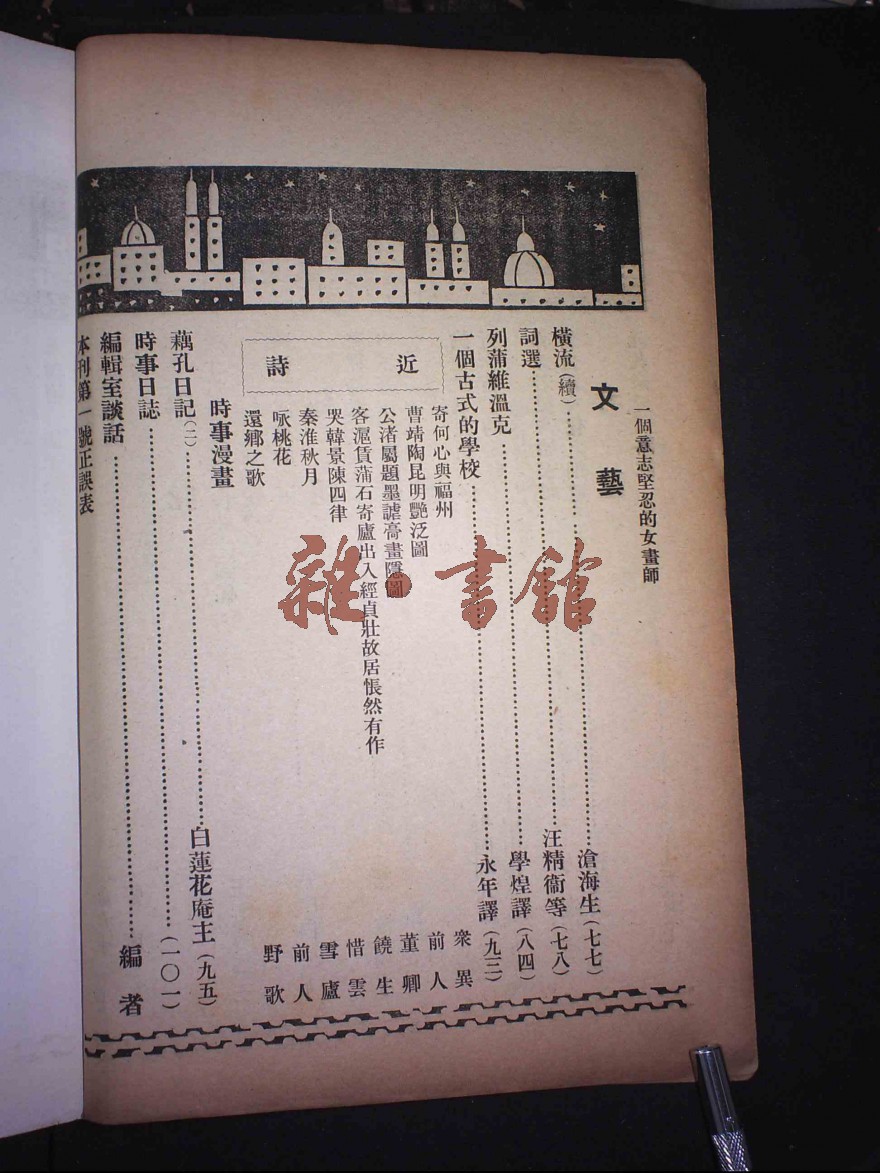 一個意志堅忍的女畫師
文藝
橫流(續)……滄海生(七七)
詞選……汪精衞等(七八)
列蒲維溫克……學煌譯(八四)
一個古式的學校……永年譯(九三)
近詩
寄何心與福州 衆異
曹靖陶昆明艷泛圖 前人
公渚屬題墨謔高畫隱圖 董卿
客滬賃蒲石寄廬出入經貞壯故居悵然有作 饒生
哭韓景陳四律 惜雲
秦淮秋月 雪廬
咏桃花 前人
還鄉之歌 野歌
時事漫畫
藕孔日記(二)……白蓮花庵主(九五)
時事日誌……(一〇一)
編輯室談話……編者
本刊第一號正誤表
雜·書館